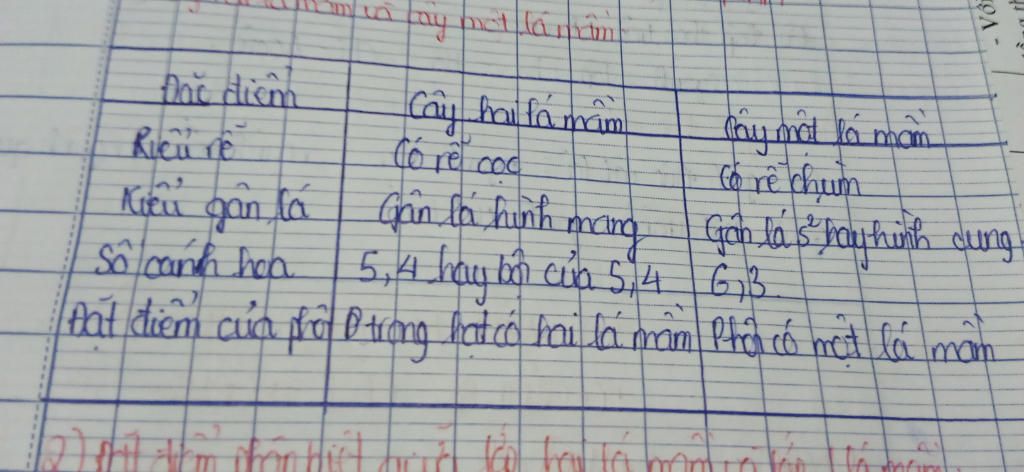 cây một lá mầm
Đăc điểm Cây hai lá mầm Cây một lá mầm
Kiểu rễ Có rễ cọc Có rễ chùm
Kiểu gân lá Gân lá hình mạng Gân lá s² hay hình cung
Số cánh hoa 5,4 hay bội của 5,4 6,3
Đăt điểm của phôi P trong hạt có hai lá mầm Phôi có một lá mầm
2) điểm phân biệt lớp hai lá mầm và lớp 1 lá mầm